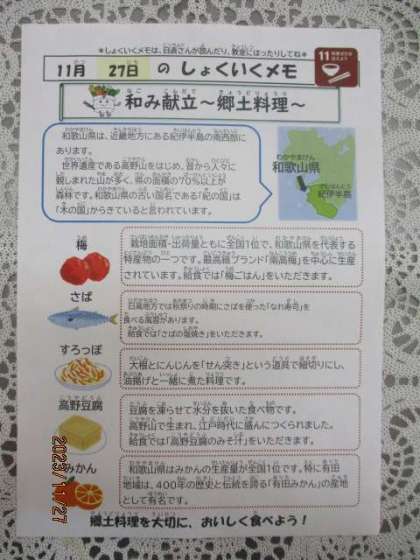 ＊しょくいくメモは、日直さんが読んだり、教室にはったりしてね＊
11月 27日 の しょくいくメモ
11
和み献立～郷土料理～
和歌山県は、近畿地方にある紀伊半島の南西部に
あります。
世界遺産である高野山をはじめ、昔から人々に
親しまれた山が多く、県の面積の70%以上が
森林です。和歌山県の古い国名である「紀の国」は
「木の国」からきていると言われています。
和歌山県
紀伊半島
梅
栽培面積・出荷量ともに全国1位で、和歌山県を代表する
特産物の一つです。最高級ブランド「南高梅」を中心に生産
されています。給食では「梅ごはん」をいただきます。
さば
日高地方では秋祭りの時期にさばを使った「なれ寿司」を
食べる風習があります。
給食では「さばの塩焼き」をいただきます。
すろっぽ
大根とにんじんを「せん突き」という道具で細切りにし、
油揚げと一緒に煮た料理です。
高野豆腐
豆腐を凍らせて水分を抜いた食べ物です。
高野山で生まれ、江戸時代に盛んにつくられました。
給食では「高野豆腐のみそ汁」をいただきます。
みかん
和歌山県はみかんの生産量が全国1位です。特に有田
地域は、400年の歴史と伝統を誇る「有田みかん」の産地
として有名です。
郷土料理を大切に、おいしく食べよう！
2025/11/27